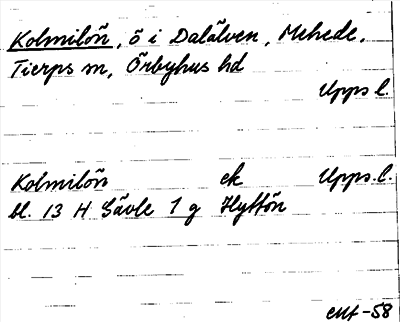 Kolmilön, ö i Dalälven, Mehede,
Tierps sn, Örbyhus hd
Upps l.
Kolmilön ek Upps. l.
bl. 13 H Gävle 1 g Hyttön
-58